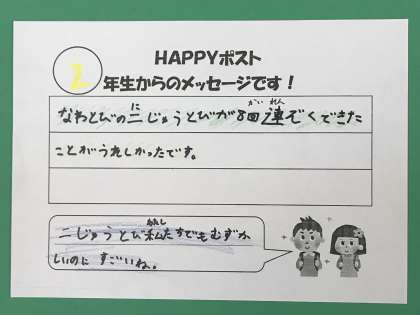 HAPPYポスト
2年生からのメッセージです！
なわとびの二(に)じゅうとびが8回(かい)連(れん)ぞくできた
ことがうれしかったです。
二じゅうとび私(わたし)たちでもむずか
しいのに すごいね。